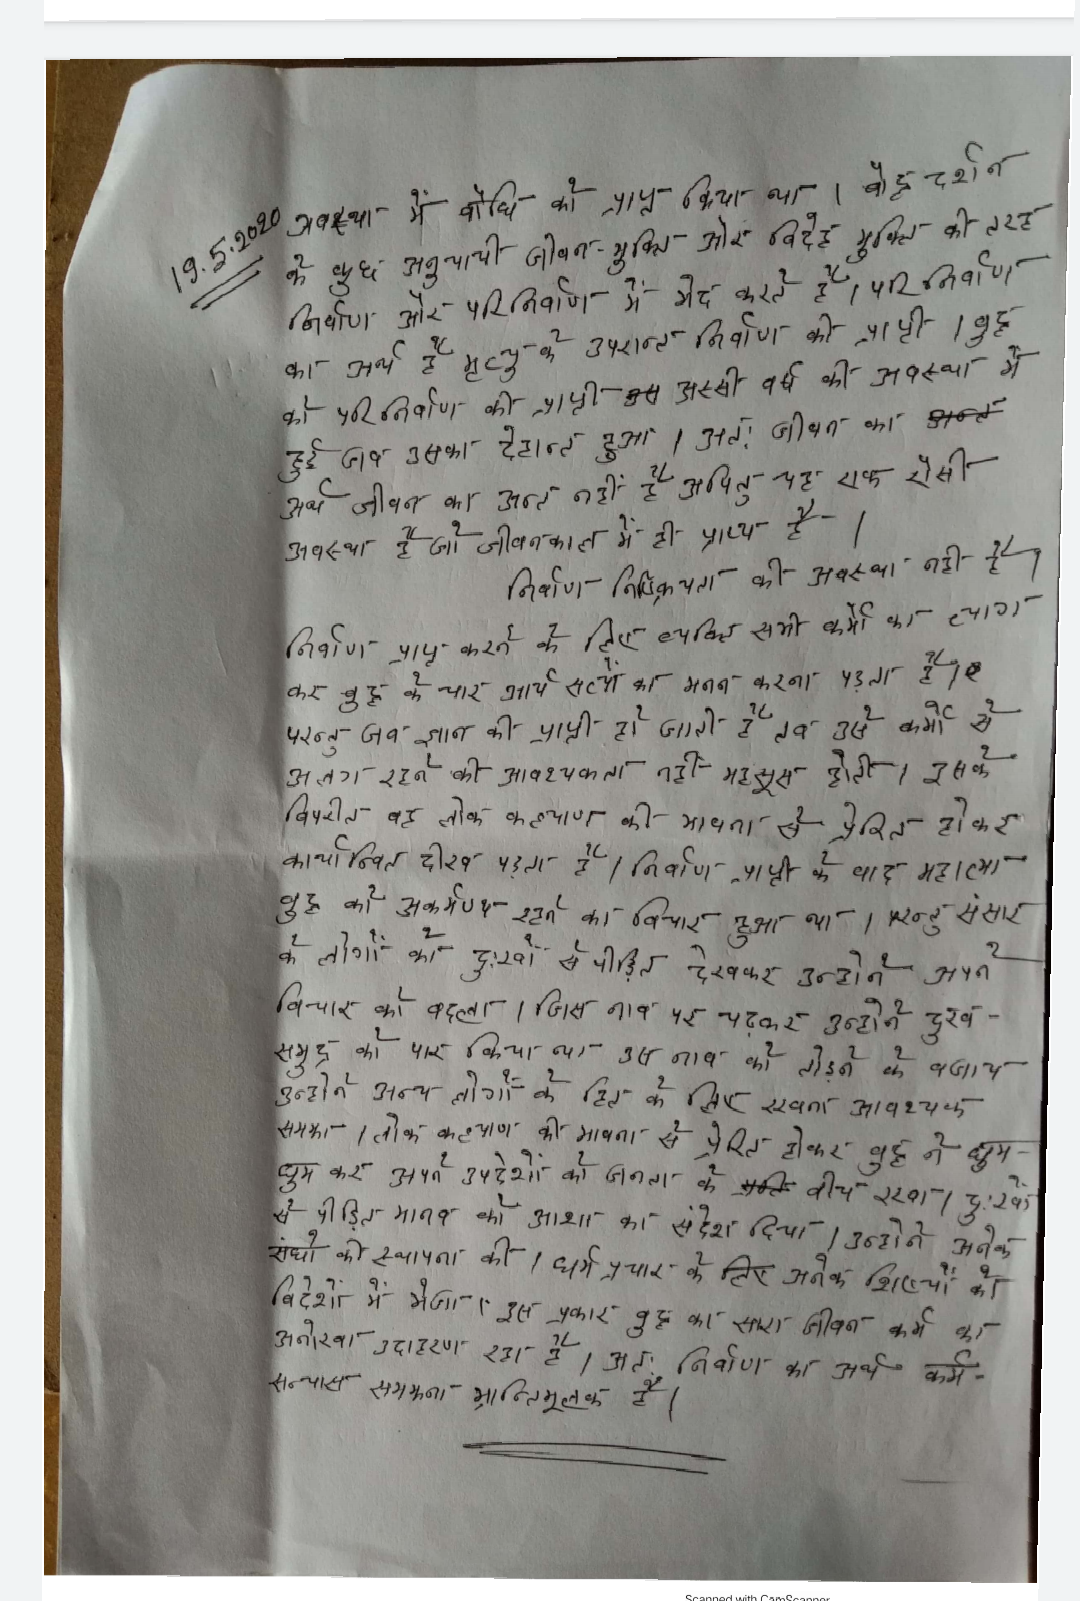 19.5.2020
अवस्था में बोधि को प्राप्त किया था । बौद्ध दर्शन
के कुछ अनुयायी जीवन-मुक्ति और विदेह मुक्ति की तरह
निर्वाण और परिनिर्वाण में भेद करते हैं । परिनिर्वाण
का अर्थ है मृत्यु के उपरान्त निर्वाण की प्राप्ती । बुद्ध
को परिनिर्वाण की प्राप्ती अस्सी वर्ष की अवस्था में
हुई जब उसका देहान्त हुआ । अतः जीवन का
अर्थ जीवन का अन्त नहीं है अपितु यह एक ऐसी
अवस्था है जो जीवनकाल में ही प्राप्य है ।
निर्वाण निष्क्रियता की अवस्था नहीं है ।
निर्वाण प्राप्त करने के लिए व्यक्ति सभी कर्मों का त्याग
कर बुद्ध के चार आर्य सत्यों का मनन करना पड़ता है ।
परन्तु जब ज्ञान की प्राप्ती हो जाती है तब उसे कर्मों से
अलग रहने की आवश्यकता नहीं महसूस होती । इसके
विपरीत वह लोक कल्याण की भावना से प्रेरित होकर
कार्यान्वित दीख पड़ता है । निर्वाण प्राप्ती के बाद महात्मा
बुद्ध को अकर्मण्य रहने का विचार हुआ था । परन्तु संसार
के लोगों को दुःखों से पीड़ित देखकर उन्होंने अपने
विचार को बदला । जिस नाव पर चढ़कर उन्होंने दुःख-
समुद्र को पार किया था उस नाव को तोड़ने के बजाय
उन्होंने अन्य लोगों के हित के लिए रखना आवश्यक
समझा । लोक कल्याण की भावना से प्रेरित होकर बुद्ध ने घुम-
घुम कर अपने उपदेशों को जनता के बीच रखा । दुःखों
से पीड़ित मानव को आशा का संदेश दिया । उन्होंने अनेक
संघों की स्थापना की । धर्म प्रचार के लिए अनेक शिष्यों को
विदेशों में भेजा । इस प्रकार बुद्ध का सारा जीवन कर्म का
अनोखा उदाहरण रहा है । अतः निर्वाण का अर्थ कर्म-
सन्यास समझना भ्रान्तिमूलक है ।
Scanned with CamScanner